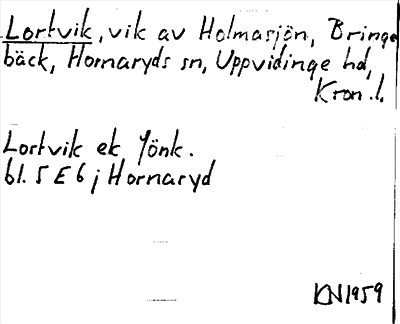 Lortvik, vik av Holmasjön, Bringe
bäck, Hornaryds sn, Uppvidinge hd,
Kron. l.
Lortvik ek Jönk.
bl. 5 E 6 j Hornaryd
KN1959